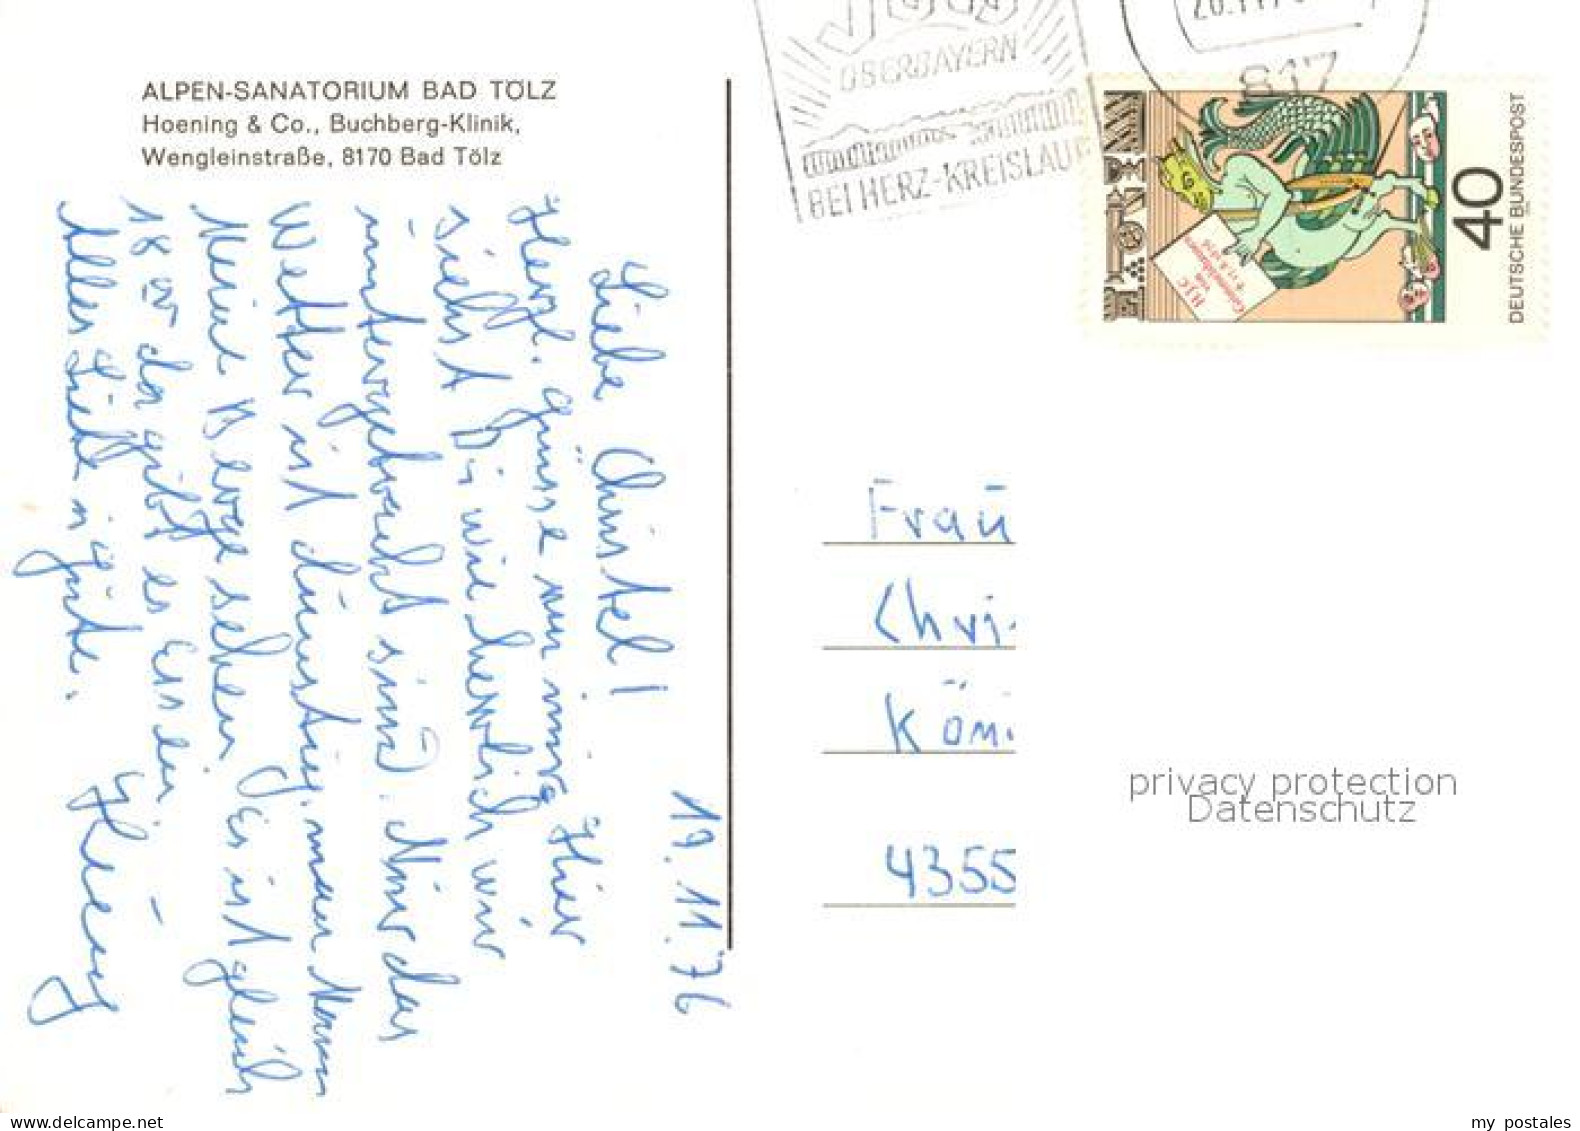 JOD
OBERBAYERN
BEI HERZ-KREISLAUF
817
ALPEN-SANATORIUM BAD TÖLZ
Hoening & Co., Buchberg-Klinik,
Wengleinstraße, 8170 Bad Tölz
40
DEUTSCHE BUNDESPOST
HJC
Grimmelshausen
19.11.76
Liebe Christel!
Herzl. Grüsse von hier
siehst Du wie herrlich wir
untergebracht sind. Nur das
Wetter ist dunstig, man kann
keine Berge sehen. Es ist gleich
18 00 da gibt es Essen
Alles Liebe u. gute.
Frau
Chri
Köni
4355
privacy protection
Datenschutz
my postales